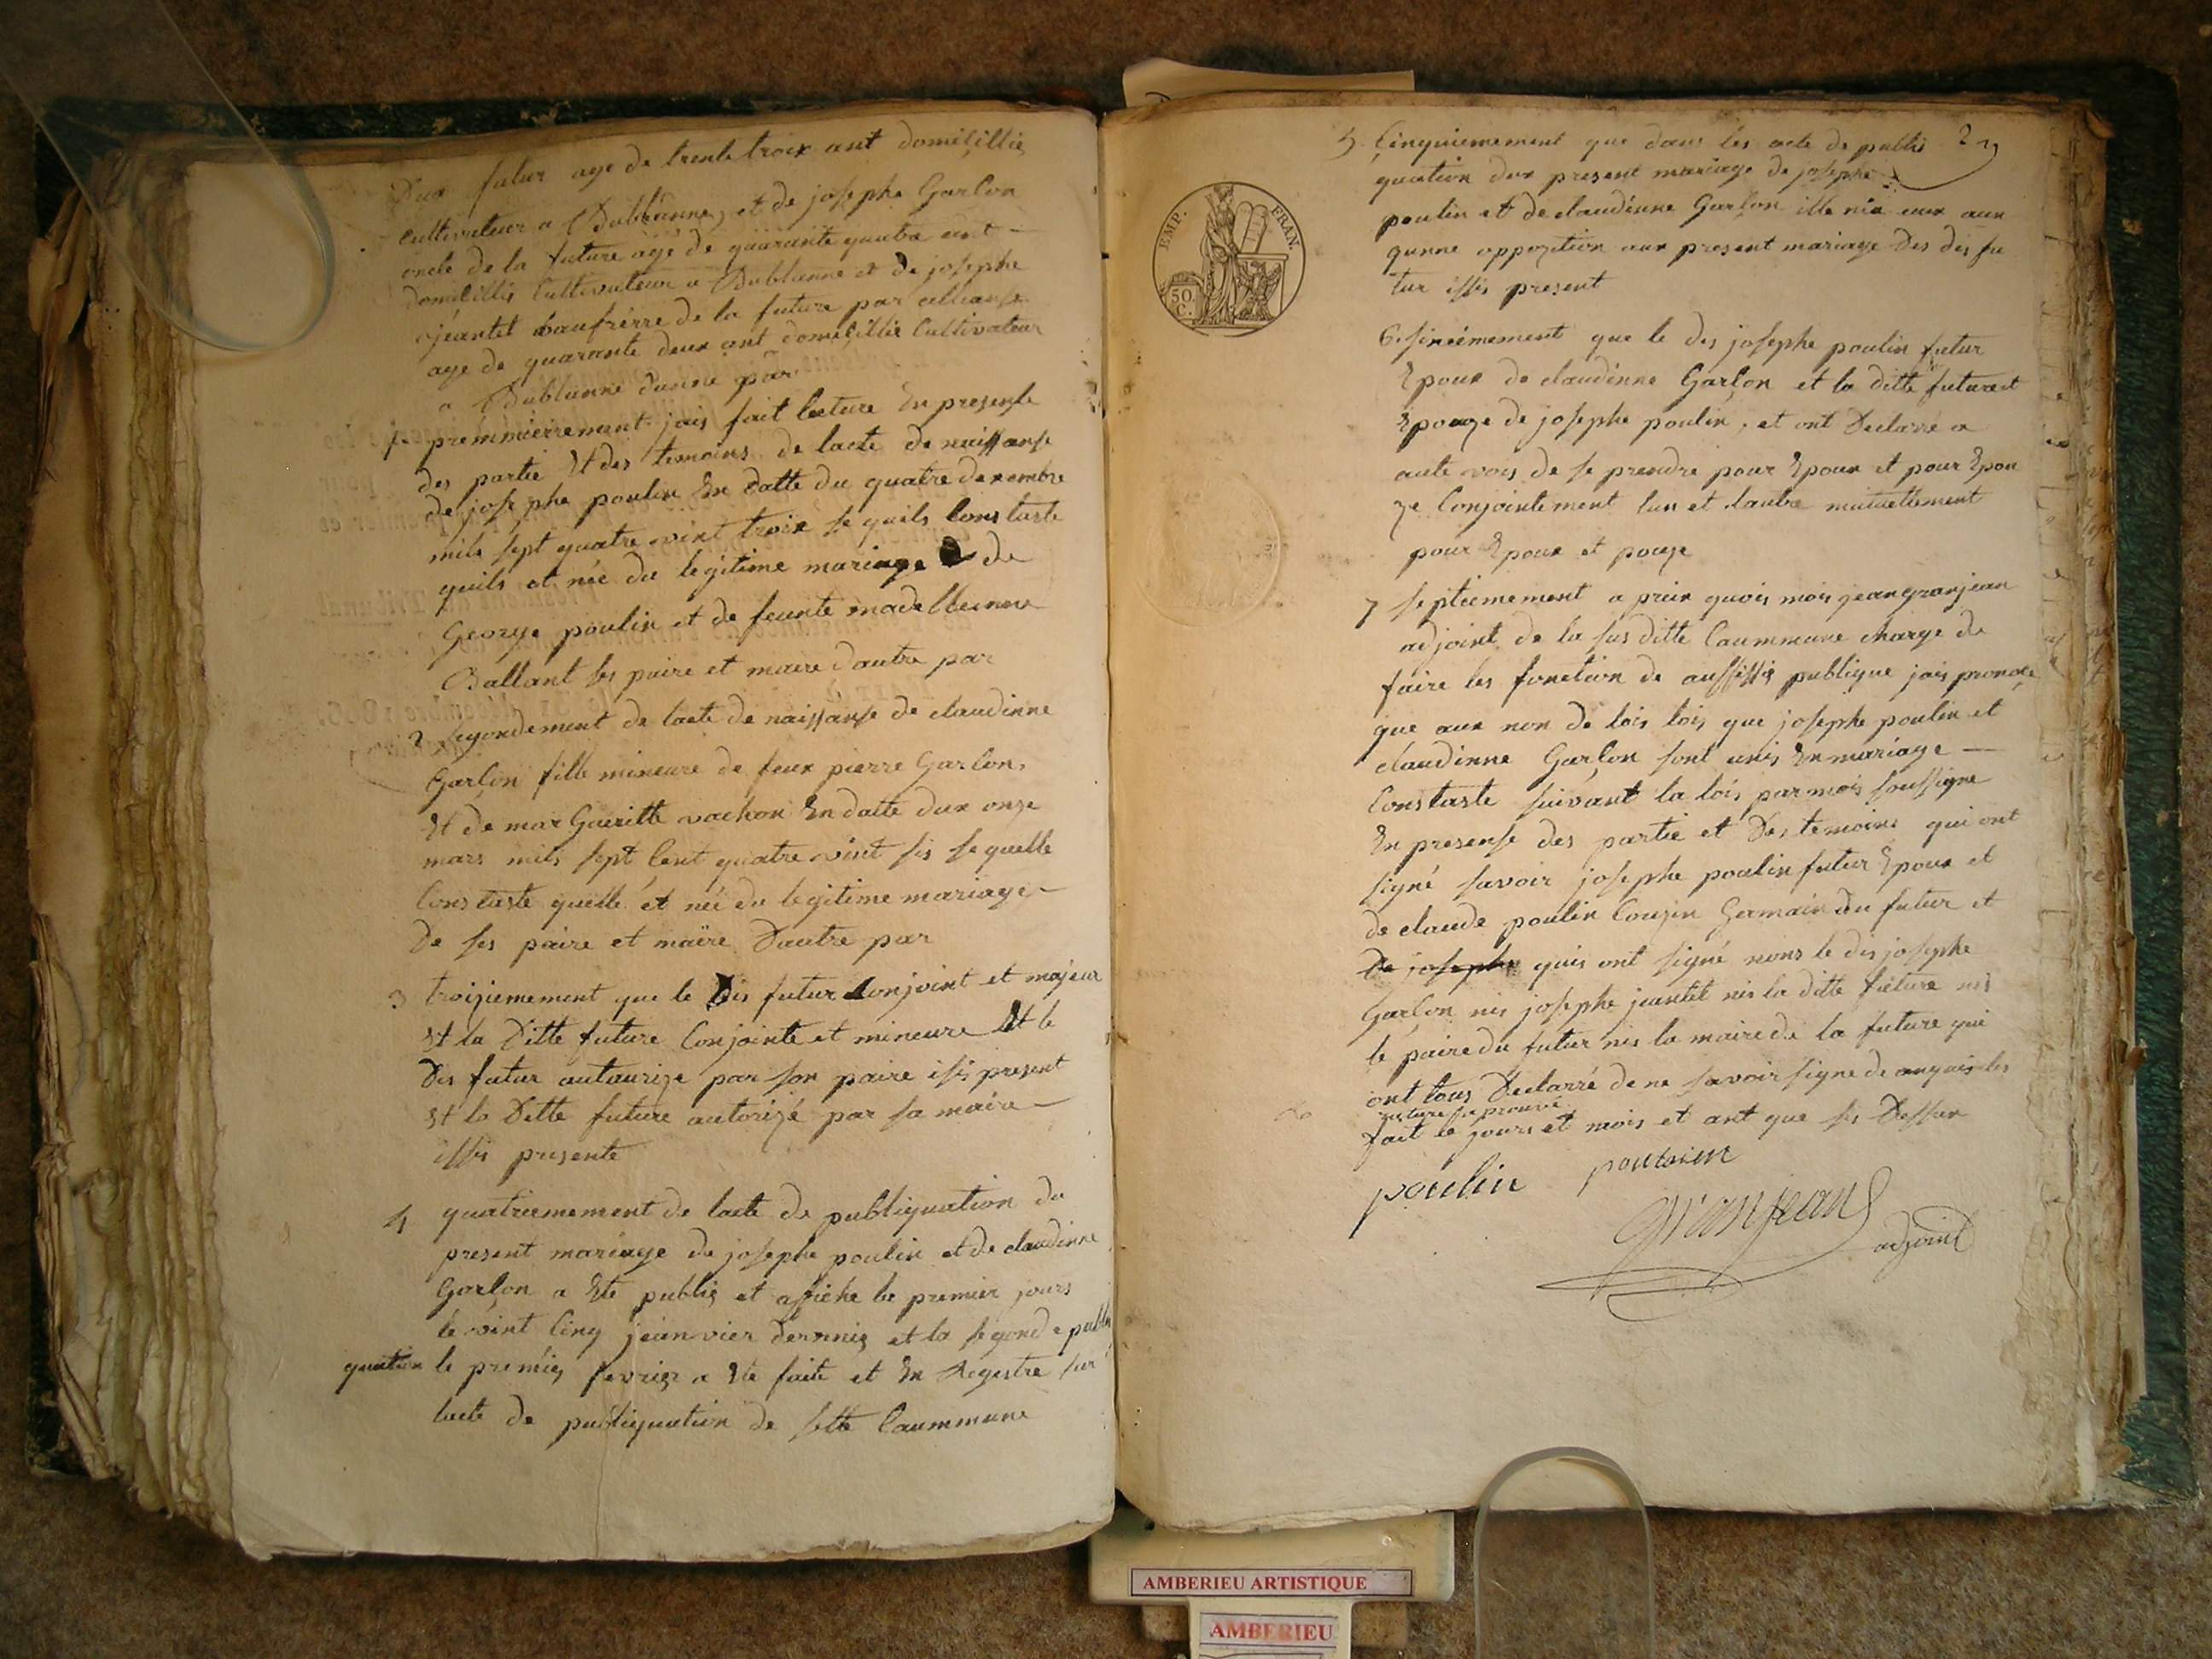 Dux futur age de trente troix ant domiçillié
Cultivateur a Dublanne, et de josephe Garlon
oncle de la future age de quarante quatre ant
domicillié Cultivateur a Dublanne et de josephe
jeantet baufrérre de la future par allianse
age de quarante deux ant domiçillié Cultivateur
a Dublanne dunne par
1 premmierrement jais fait lecture En presense
des partie Et des temoins de lacte de naissanse
de josephe poulin En datte du quatre decembre
mils sept quatre vint troix se quils Constaste
quils et née du legitime mariage de
George poulin et de feunte madelleinne
Ballant ses paire et maire dautre par
2 segondement de lacte de naissanse de claudinne
Garlon fille mineure de feux pierre Garlon
Et de marGueritte vachon En datte dux onze
mars mils sept Cent quatre vint sis se quelle
Constaste quelle et née du legitime mariage
De ses paire et maire Dautre par
3 troiziemement que le Dis futur Conjoint et majeur
Et la Ditte future Conjointe et mineure Et le
Dis futur autaurize par son paire issis present
Et la Ditte future autorizé par sa maire
issis presente
4 quatriemement de lacte de publiquation du
present mariage de josephe poulin et de claudinne
Garlon a Ete publié et affiche le premier jours
le vint Cinq jeanvier dernnié et la segonde publi
quation le premiés fevrier a Ete faite et En Registre sur
lacte de publiquation de sette Caummune
29
5 Çinquiemement que dans les acte de publi
quation dux present mariage de josephe
poulin et de claudinne Garlon ille nia eux aux
qunne oppozition aux present mariage Des dis fu
tur issis present
EMP. FRAN.
50 C.
6 sixiémement que le dis josephe poulin futur
Epoux de claudinne Garlon et la ditte future et
Epouze de josephe poulin, et ont Declarré a
aute vois de se prendre pour Epoux et pour Epou
ze Conjointement lun et lautre mutuellement
pour Epoux et pouze
7 septiemement a prix quois mois jean granjean
adjoint de la sus ditte Caummune charge de
faire les fonction de aussissié publique jais prononçe
que aux non de lois lois que josephe poulin et
claudinne Garlon sont unis En mariage
Constaste suivant la lois par mois soussigne
En presense des partie et Des temoins qui ont
signé savoir josephe poulin futur Epoux et
de claude poulin Couzin Germain du futur et
De josephe quis ont signé nons le dis josephe
Garlon nis josephe jeantet nis la ditte future nis
le paire du futur nis la maire de la future qui
ont tous Declarré de ne savoir signe de anquis les
fait le jours et mois et ant que sis Dessux
poulin
granjean
adjoint
AMBERIEU ARTISTIQUE
AMBERIEU